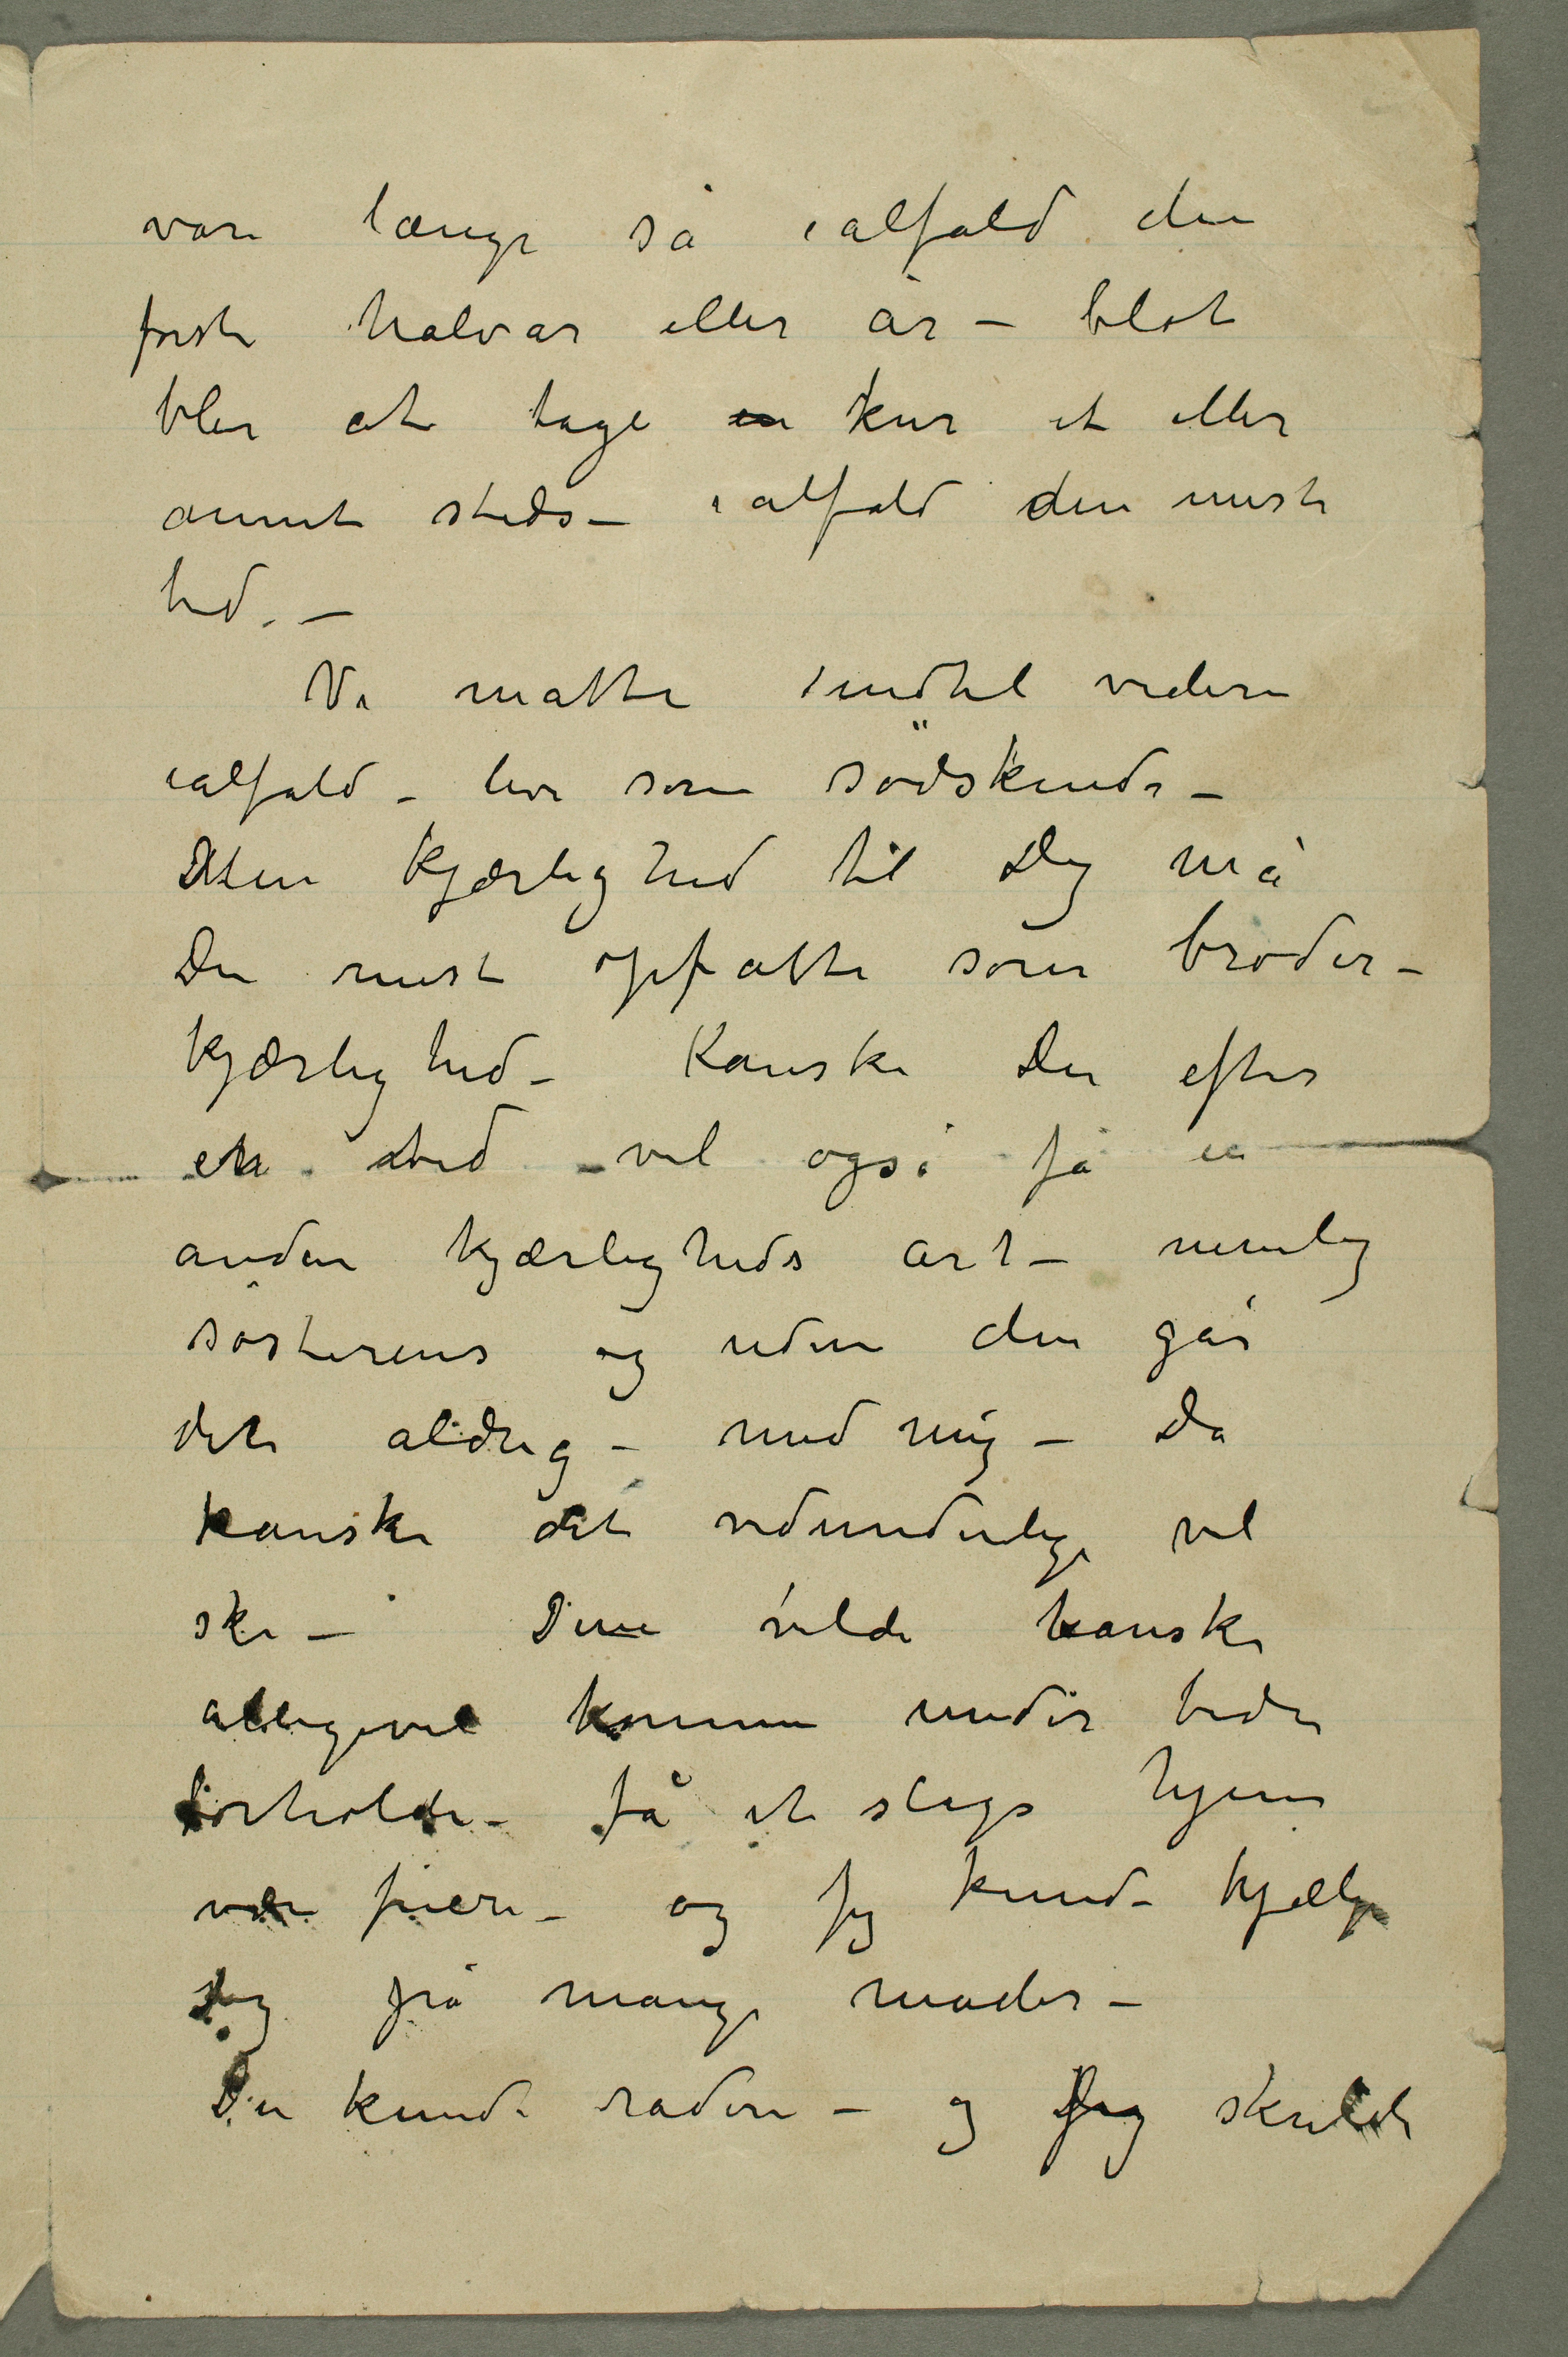 vare længe så ialfald den
første halvår eller år – blot
bler at tage en kur et eller
annet steds – ialfald den meste
tid. –
Vi måtte indtil videre
ialfald – leve som södskende –
Min kjærlighed til Dig må
Du mest opfatte som broder-
kjærlighed – Kanske Du efter
en tid vil også få en
anden kjærligheds art – nemlig
søsterens og uden den går
det aldrig – med mig – Da
kanske det vidunderlige vil
ske – Din vilde kanske
alligevel komme under bedre
forholde – få et slags hjem
være friere – og jeg kunde hjælpe
Dig på mange måder –
Du kunde radere – og Jeg skulde